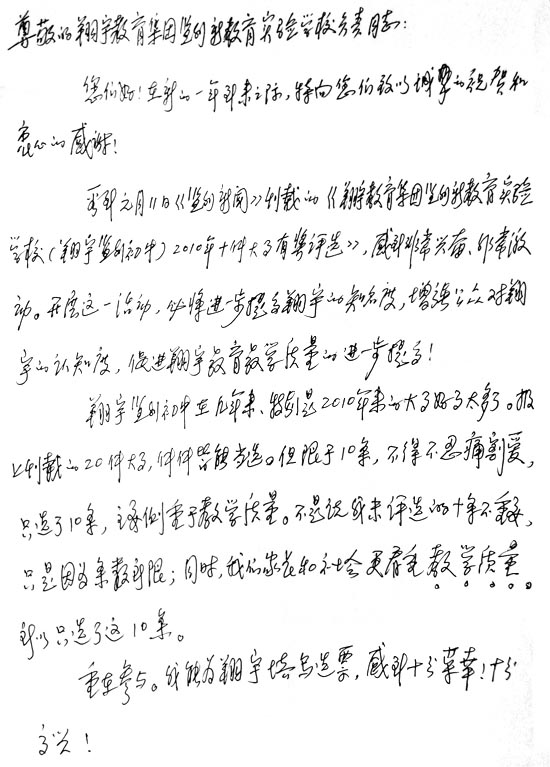 尊敬的翔宇教育集团监利新教育实验学校负责同志:
您们好!在新的一年到来之际,特向您们致以诚挚的祝贺和
衷心的感谢!
看到元月11日《监利新闻》刊载的《翔宇教育集团监利新教育实验
学校(翔宇监利初中)2010年十件大事有奖评选》,感到非常兴奋、非常激
动。开展这一活动,必将进一步提高翔宇的知名度,增强公众对翔
宇的认知度,促进翔宇教育教学质量的进一步提高!
翔宇监利初中在几年来、特别是2010年来的大事好事太多了。报
上刊载的20件大事,件件皆能当选。但限于10条,不得不忍痛割爱,
只选了10条,主要侧重于教学质量。不是说我未评选的十条不重要,
只是因为条数所限;同时,我们家长和社会更看重教学质量。
所以只选了这10条。
重在参与。我能为翔宇填写选票,感到十分荣幸!十分
高兴!